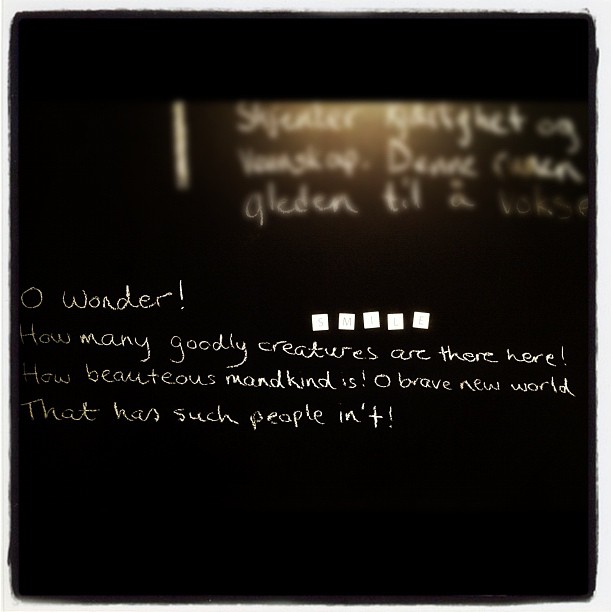 og
vennskap. Denne runen
gleden til å vokse
O Wonder!
SMILE
How many goodly creatures are there here!
How beauteous mandkind is! O brave new world
That has such people in't!